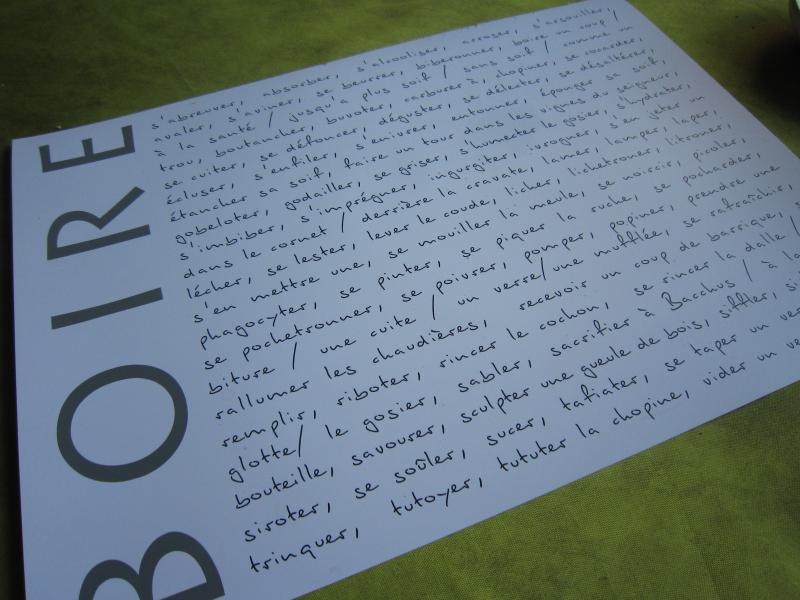 BOIRE
s'abreuver, absorber, s'alcooliser, arroser, s'arsouiller,
avaler, s'aviner, se beurrer, biberonner, boire un coup /
à la santé / jusqu'à plus soif / sans soif / comme un
trou, boutancher, buvoter, carburer à, chopiner, se cocarder,
se cuiter, se défoncer, déguster, se délecter, se désaltérer,
écluser, s'enfiler, s'enivrer, entonner, éponger sa soif,
étancher sa soif, faire un tour dans les vignes du seigneur,
gobeloter, godailler, se griser, s'humecter le gosier, s'hydrater,
s'imbiber, s'imprégner, ingurgiter, ivrogner, s'en jeter un
dans le cornet / derrière la cravate, lamer, lamper, laper,
lécher, se lester, lever le coude, licher, lichetronner, litroner,
s'en mettre une, se mouiller la meule, se noircir, picoler,
phagocyter, se pinter, se piquer la ruche, se pocharder,
se pochetronner, se poivrer, pomper, popiner, prendre une
biture / une cuite / un verre / une mufflée, se rafraîchir,
rallumer les chaudières, recevoir un coup de barrique,
remplir, riboter, rincer le cochon, se rincer la dalle /
glotte / le gosier, sabler, sacrifier à Bacchus / à la
bouteille, savourer, sculpter une gueule de bois, siffler,
siroter, se soûler, sucer, tafiater, se taper un
trinquer, tutoyer, tututer la chopine, vider un